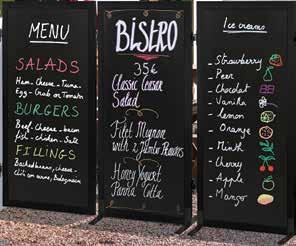 MENU
SALADS
Ham - Cheese - Tuna
Egg - Crab or Tomato
BURGERS
Beef - Cheese - bacon
fish - chicken - Salt
FILLINGS
Baked beans, cheese
chili con carne, Bolognaise
BISTRO
35€
Classic Ceaser
Salad
Filet Mignon
with 2 Jumbo Prawns
Honey Yogurt
Panna Cotta
Ice creams
- Strawberry
- Peer
- Chocolat
- Vanilla
- lemon
- Orange
- Minth
- Cherry
- Apple
- Mango